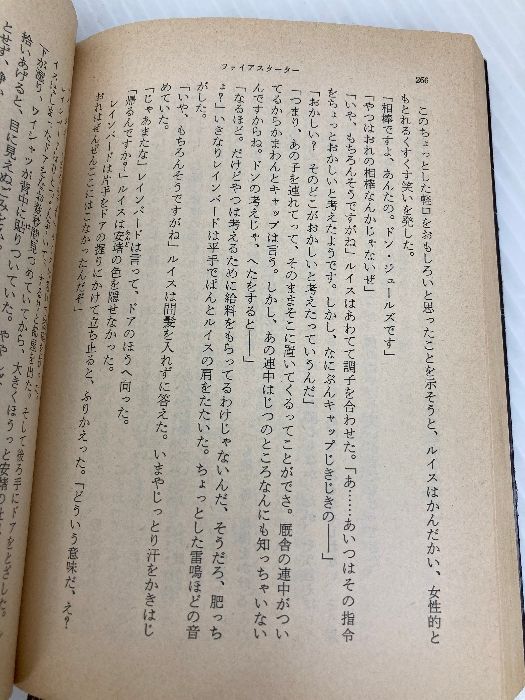 ファイアスターター
266
このちょっとした軽口をおもしろいと思ったことを示そうと、ルイスはかんだかい、女性的と
もとれるくすくす笑いを発した。
「相棒ですよ、あんたの。ドン・ジュールズです」
「やつはおれの相棒なんかじゃないぜ」
「いや、もちろんそうですがね」ルイスはあわてて調子を合わせた。「あ……あいつはその指令
をちょっとおかしいと考えたようです。しかし、なにぶんキャップじきじきの――」
「おかしい？　そのどこがおかしいと考えたっていうんだ」
「つまり、あの子を連れてって、そのままそこに置いてくるってことがでさ。厩舎の連中がつい
てるからかまわんとキャップは言う。しかし、あの連中はじつのところなんにも知っちゃいない
んですからね。ドンの考えじゃ、へたをすると――」
「なるほど。だけどやつは考えるために給料をもらってるわけじゃないんだ、そうだろ、肥っち
ょ？」いきなりレインバードは平手でぽんとルイスの肩をたたいた。ちょっとした雷鳴ほどの音
がした。
「いや、もちろんそうですがね」ルイスは間髪を入れずに答えた。いまやじっとり汗をかきはじ
めていた。
「じゃあまたな」レインバードは言って、ドアのほうへ向った。
「帰るんですか？」ルイスは安堵の色を隠せなかった。
レインバードは片手をドアの握りにかけて立ち止ると、ふりかえった。「どういう意味だ、え？
おれはぜんぜんここにはこなかったんだぞ」
そして後ろ手にドアをとざした。
大きくほうっと安堵の
ワイシャツが背中に貼りついていた。
拾いあげると、目に見えぬごみを
とせず、静か